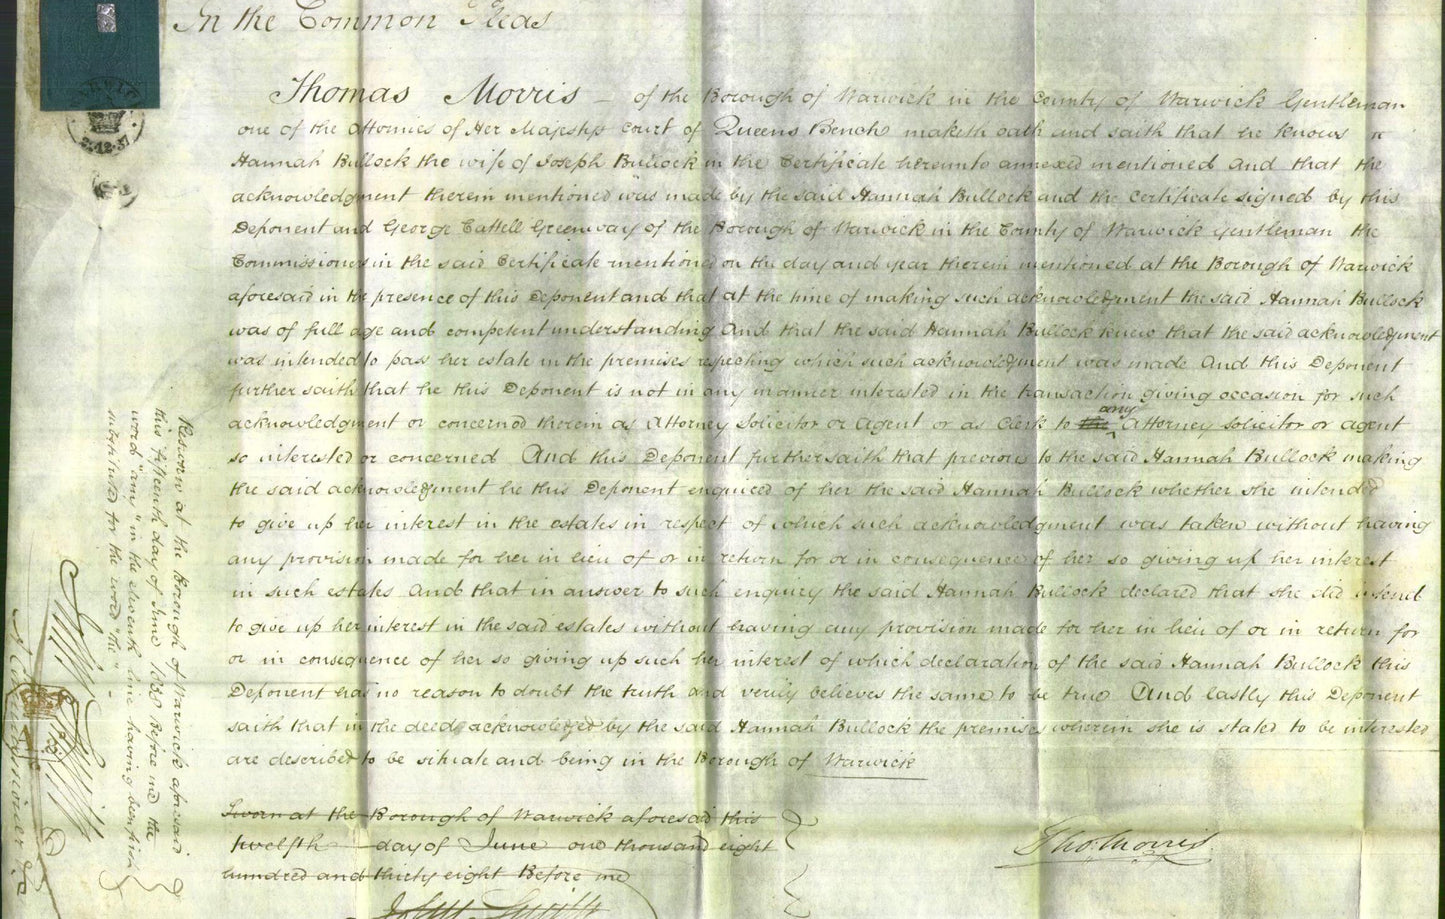 In the Common Pleas
Thomas Morris – of the Borough of Warwick in the County of Warwick Gentleman
one of the Attornies of Her Majestys Court of Queens Bench maketh oath and saith that he knows
Hannah Bullock the wife of Joseph Bullock in the Certificate hereunto annexed mentioned And that the
acknowledgment therein mentioned was made by the said Hannah Bullock and the Certificate signed by this
Deponent and George Cattell Greenway of the Borough of Warwick in the County of Warwick Gentleman the
Commissioners in the said Certificate mentioned on the day and year therein mentioned at the Borough of Warwick
aforesaid in the presence of this Deponent and that at the time of making such acknowledgment the said Hannah Bullock
was of full age and competent understanding And that the said Hannah Bullock knew that the said acknowledgment
was intended to pass her estate in the premises respecting which such acknowledgment was made And this Deponent
further saith that he this Deponent is not in any manner interested in the transaction giving occasion for such
acknowledgment or concerned therein as Attorney Solicitor or Agent or as Clerk to the any Attorney Solicitor or agent
so interested or concerned And this Deponent further saith that previous to the said Hannah Bullock making
the said acknowledgment he this Deponent enquired of her the said Hannah Bullock whether she intended
to give up her interest in the estates in respect of which such acknowledgment was taken without having
any provision made for her in lieu of or in return for or in consequence of her so giving up her interest
in such estates And that in answer to such enquiry the said Hannah Bullock declared that she did intend
to give up her interest in the said estates without having any provision made for her in lieu of or in return for
or in consequence of her so giving up such her interest of which declaration of the said Hannah Bullock this
Deponent has no reason to doubt the truth and verily believes the same to be true And lastly this Deponent
saith that in the deed acknowledged by the said Hannah Bullock the premises wherein she is stated to be interested
are described to be situate and being in the Borough of Warwick
Sworn at the Borough of Warwick aforesaid this
twelfth day of June one thousand eight
hundred and thirty eight Before me
John Smith
Thos. Morris
Resworn at the Borough of Warwick aforesaid
this fifteenth day of June 1838 Before me the
word "any" in the eleventh line having been first
substituted for the word "the" -
A Commissioner &c
WARWICK
2.12.37